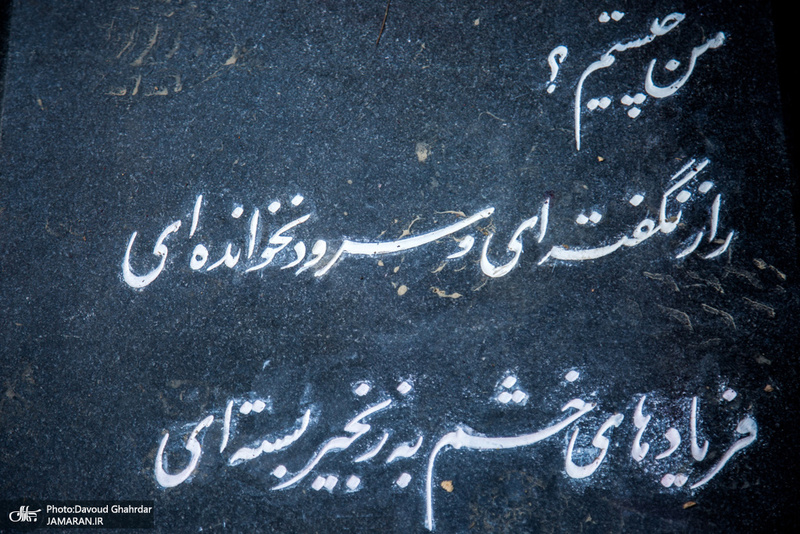 من چیستم ؟
راز نگفته ای و سرود نخوانده ای
فریادهای خشم به زنجیر بسته ای
Photo:Davoud Ghahrdar
JAMARAN.IR